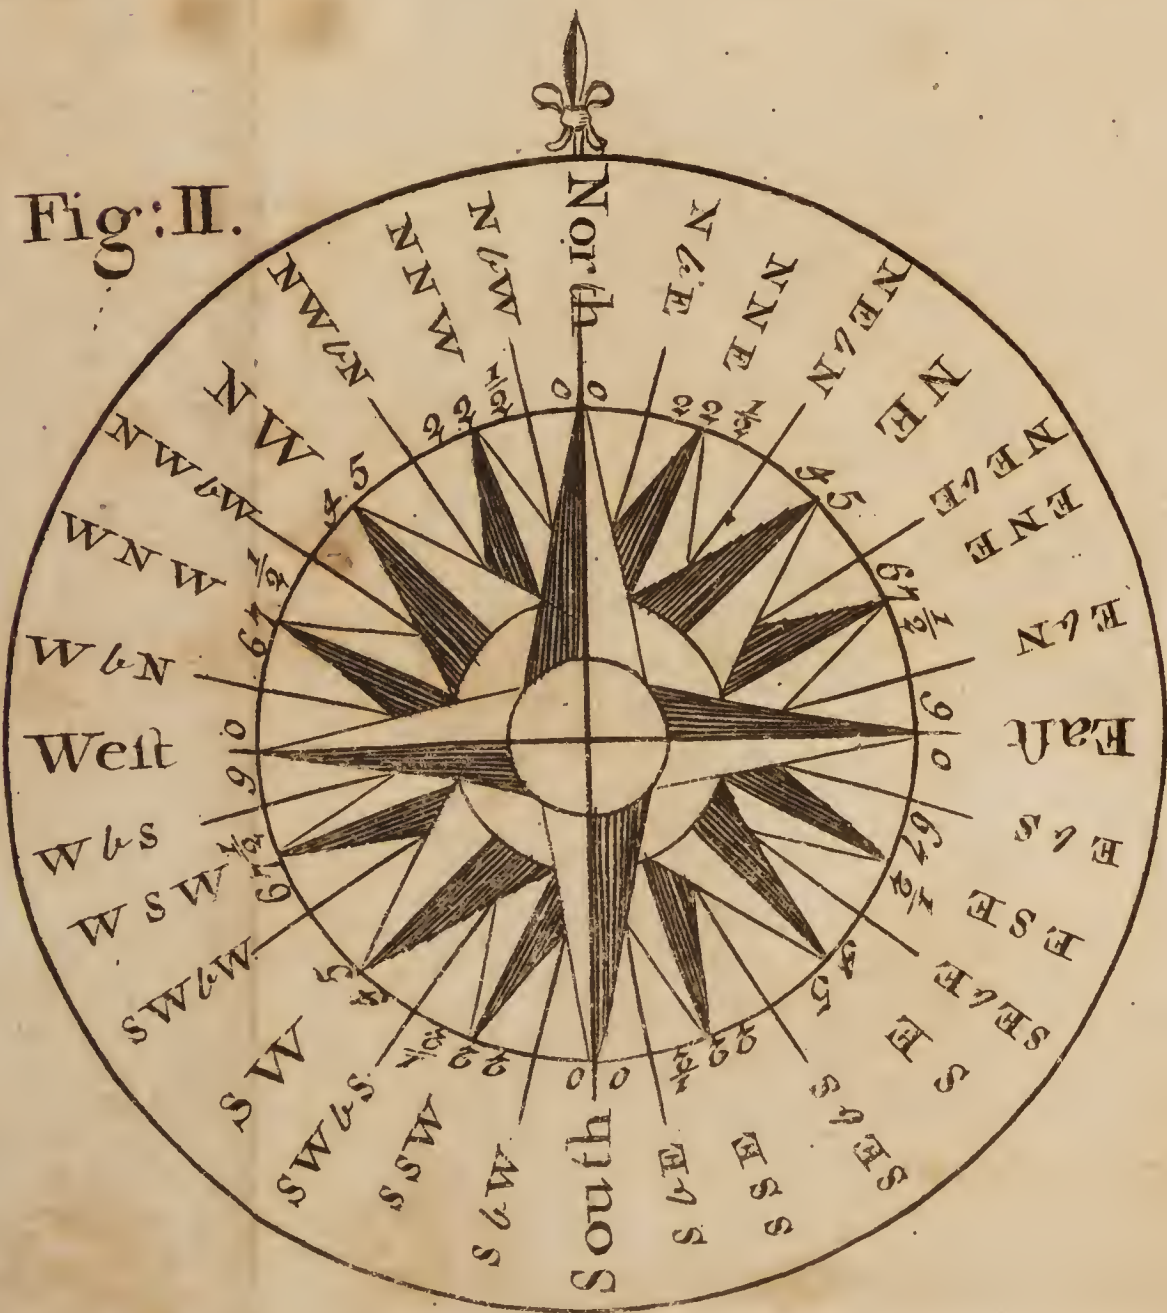 Fig: II.
North
N b E
N N E
NE b N
N E
NE b E
E N E
E b N
Eaſt
E b S
E S E
SE b E
S E
SE b S
S S E
S b E
South
S b W
S S W
SW b S
S W
SW b W
W S W
W b S
Weſt
W b N
W N W
NW b W
N W
NW b N
N N W
N b W
0 0
22 ½
45
67 ½
90
67 ½
45
22 ½
0 0
22 ½
45
67 ½
90
67 ½
45
22 ½